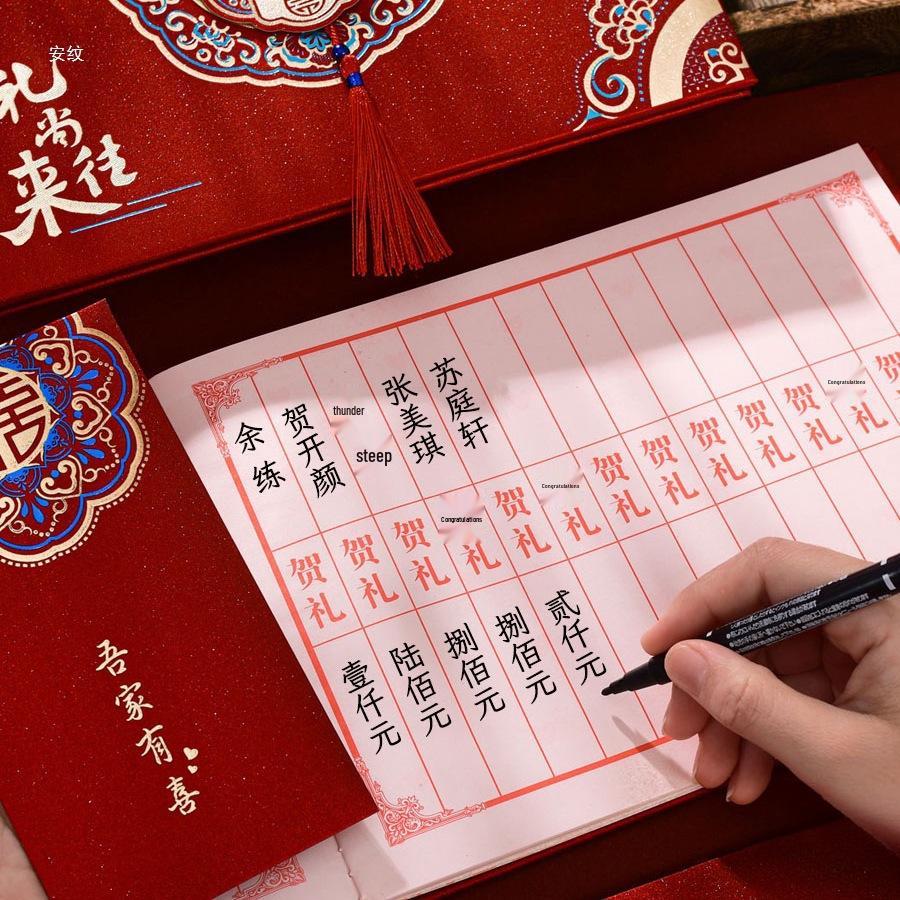 安纹
礼尚往来
余练
贺开颜
thunder
steep
张美琪
苏庭轩
贺礼
贺礼
贺礼
Congratulations
礼
贺礼
Congratulations
礼
贺礼
贺礼
贺礼
贺礼
贺礼
Congratulations
礼
贺
壹仟元
陆佰元
捌佰元
捌佰元
贰仟元
吾家有喜